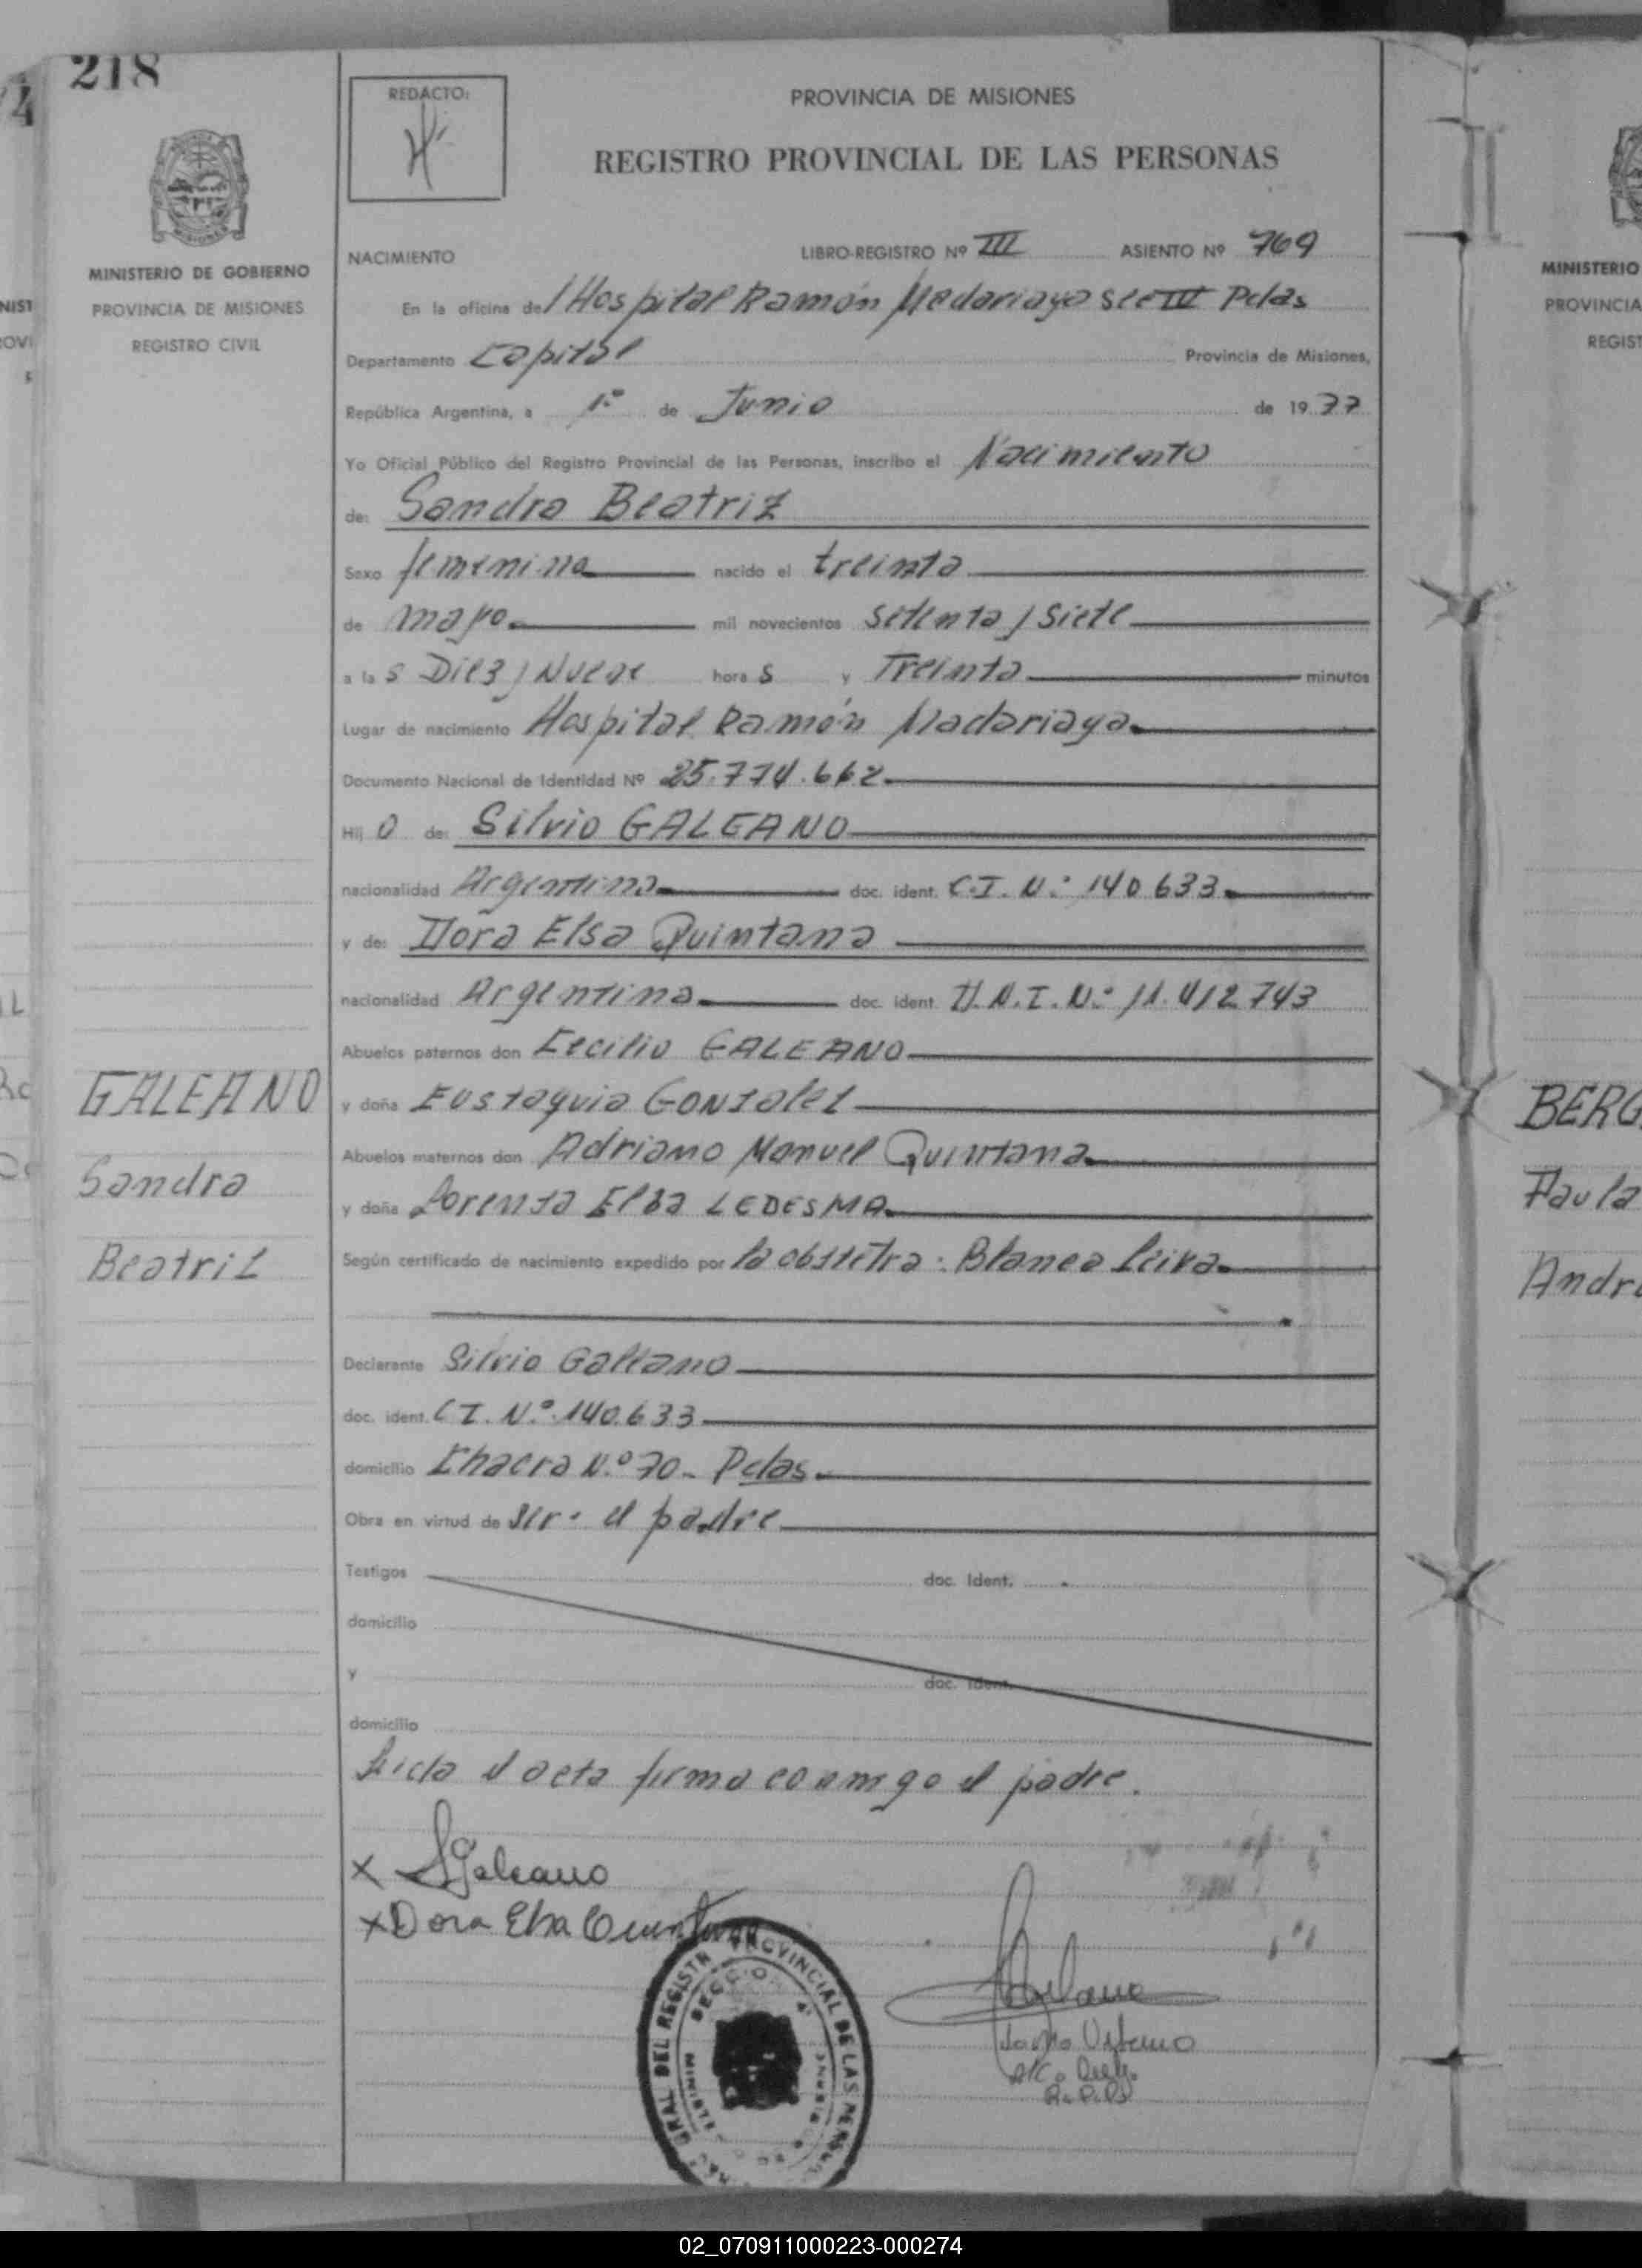 218
REDACTO:
PROVINCIA DE MISIONES
REGISTRO PROVINCIAL DE LAS PERSONAS
MINISTERIO DE GOBIERNO
PROVINCIA DE MISIONES
REGISTRO CIVIL
NACIMIENTO LIBRO-REGISTRO Nº III ASIENTO Nº 769
En la oficina del Hospital Ramón Madariaga Sec III Pdas
Departamento Capital Provincia de Misiones,
República Argentina, a 1º de Junio de 1977
Yo Oficial Público del Registro Provincial de las Personas, inscribo el Nacimiento
de: Sandra Beatriz
Sexo femenino nacido el treinta
de mayo mil novecientos setenta y siete
a las Diez y Nueve horas y Treinta minutos
Lugar de nacimiento Hospital Ramón Madariaga
Documento Nacional de Identidad Nº 25.774.662
Hijo de: Silvio GALEANO
nacionalidad Argentina doc. ident. C.I. N.º 140.633
y de: Dora Elsa Quintana
nacionalidad Argentina doc. ident. D.N.I. N.º 11.412.743
Abuelos paternos don Cecilio GALEANO
y doña Eustaquia Gonzalez
Abuelos maternos don Adriano Manuel Quintana
y doña Lorenza Elba LEDESMA
Según certificado de nacimiento expedido por la obstetra: Blanca Leiva
GALEANO
Sandra
Beatriz
Declarante Silvio Galeano
doc. ident. C I. N.º 140.633
domicilio Chacra N.º 70 - Pdas
Obra en virtud de ser: el padre
Testigos doc. Ident.
domicilio
y doc. Ident.
domicilio
Leida el acta firma conmigo el padre.
x SGaleano
x Dora Elsa Quintana
GRAL DEL REGISTRO PROVINCIAL DE LAS PERSONAS
SECCION 4ª
R.P.P.
MINISTERIO
PROVINCIA
REGIST
BERG
Paula
Andre
02_070911000223-000274